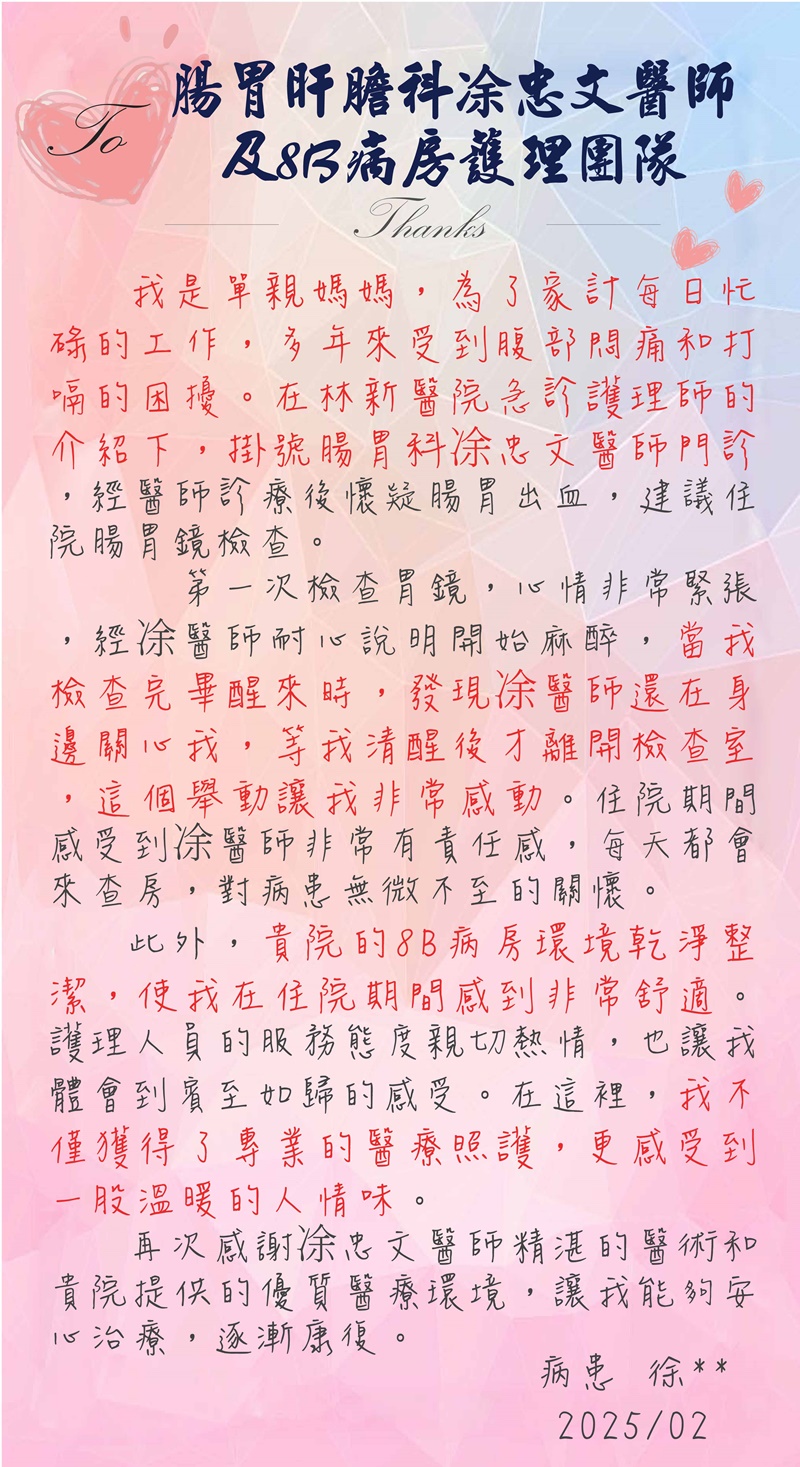 To
腸胃肝膽科凃忠文醫師
及8B病房護理團隊
Thanks
我是單親媽媽，為了家計每日忙
碌的工作，多年來受到腹部悶痛和打
嗝的困擾。在林新醫院急診護理師的
介紹下，掛號腸胃科凃忠文醫師門診
，經醫師診療後懷疑腸胃出血，建議住
院腸胃鏡檢查。
第一次檢查胃鏡，心情非常緊張
，經凃醫師耐心說明開始麻醉，當我
檢查完畢醒來時，發現凃醫師還在身
邊關心我，等我清醒後才離開檢查室
，這個舉動讓我非常感動。住院期間
感受到凃醫師非常有責任感，每天都會
來查房，對病患無微不至的關懷。
此外，貴院的8B病房環境乾淨整
潔，使我在住院期間感到非常舒適。
護理人員的服務態度親切熱情，也讓我
體會到賓至如歸的感受。在這裡，我不
僅獲得了專業的醫療照護，更感受到
一股溫暖的人情味。
再次感謝凃忠文醫師精湛的醫術和
貴院提供的優質醫療環境，讓我能夠安
心治療，逐漸康復。
病患 徐**
2025/02